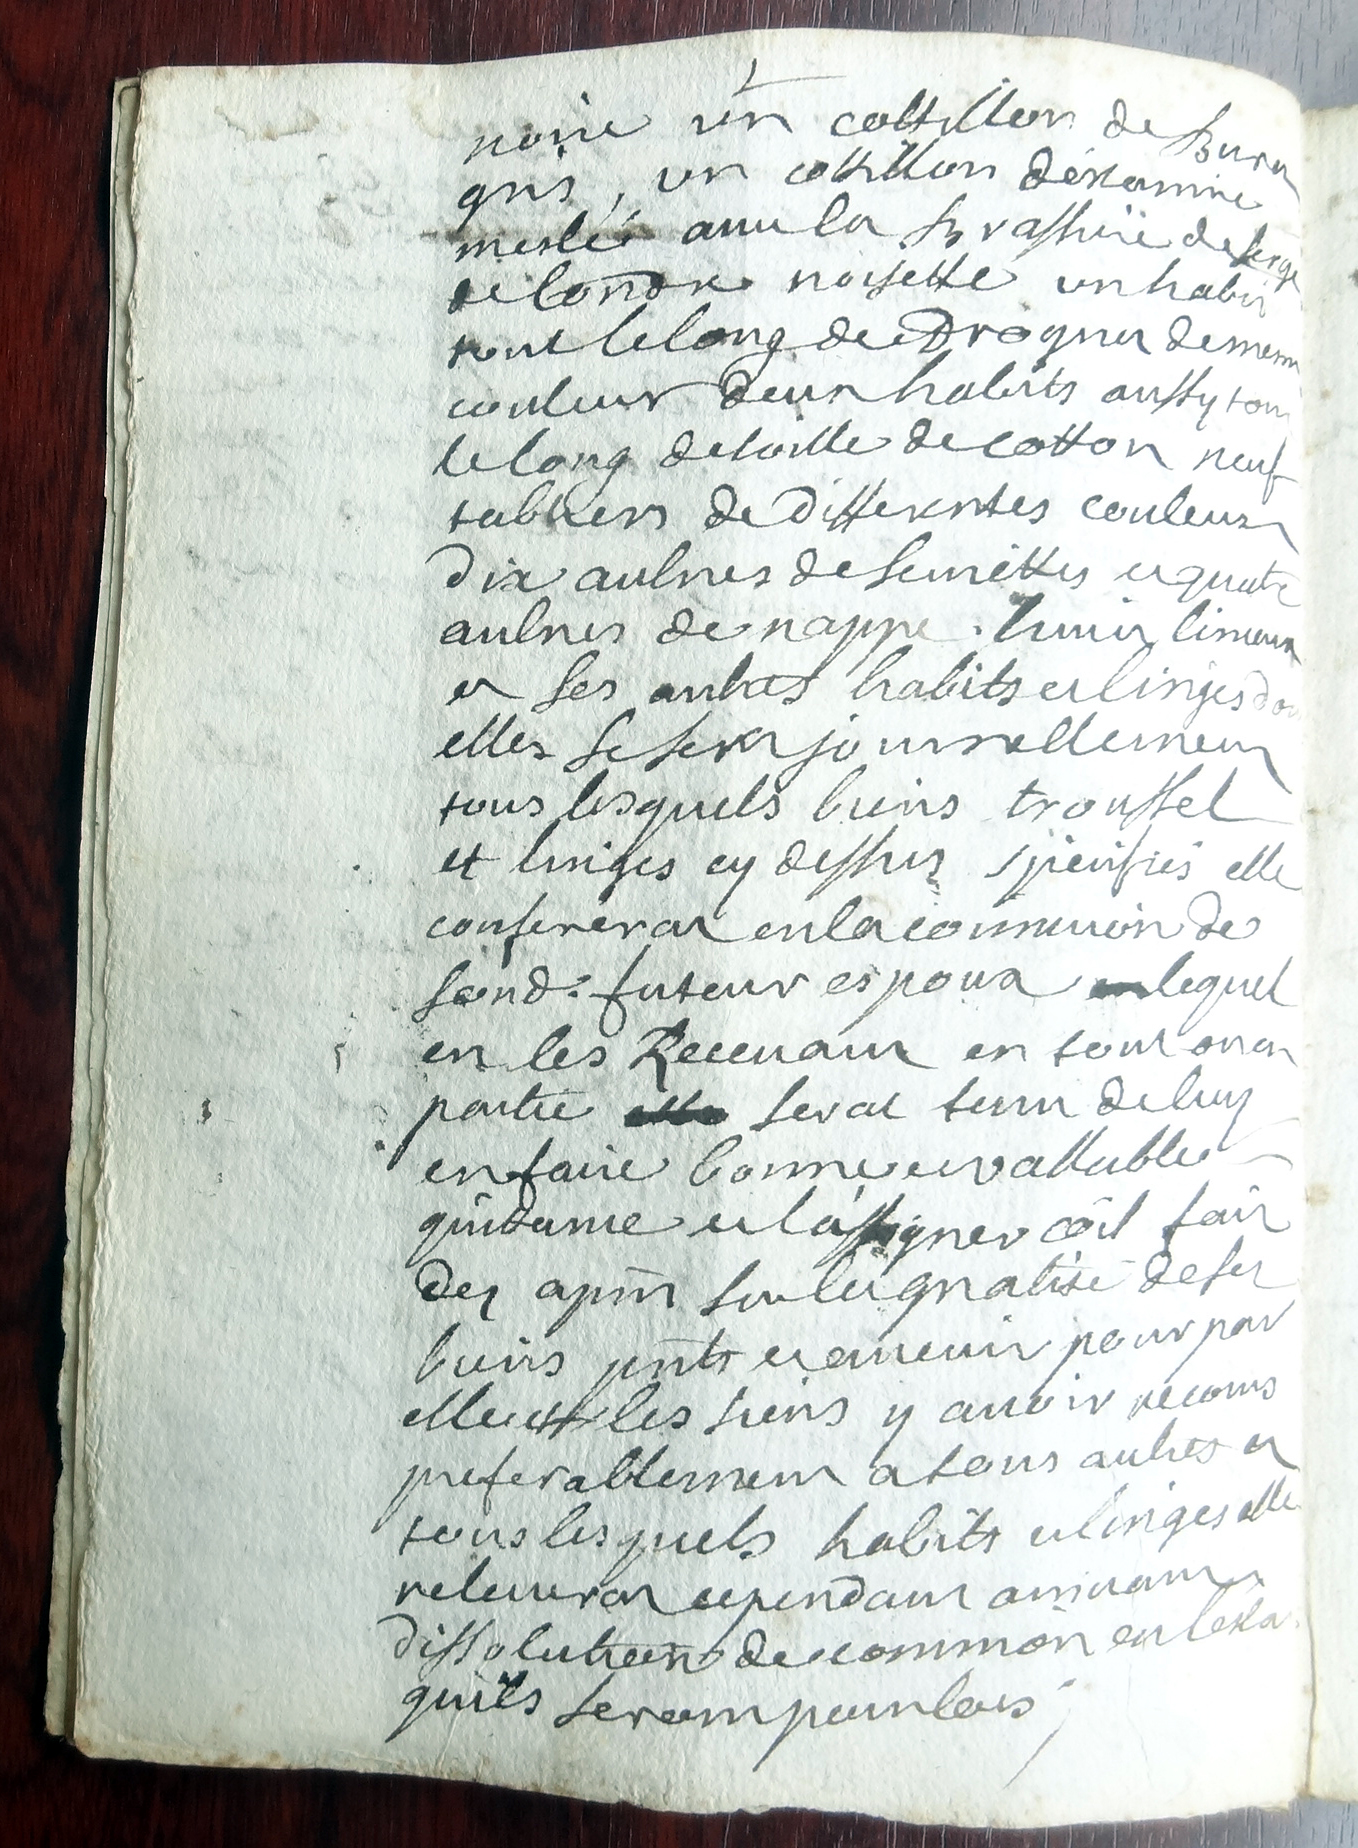 noire un cottillon de Burat
gris, un cottillon déstamine
meslée auec la Brassiere de serge
de londre noisette un habit
tout le long de Droguet de mesme
couleur deux habits aussy tout
le long de toille de cotton neuf
tabliers de differentes couleurs
dix aulnes de seruiettes et quatre
aulnes de nappe. huict linceux
et ses autres habits et linges dont
elles se sert journellement
tous lesquels biens troussel
et linges cy dessus speciffiés elle
conferera en la communion de
sond. futeur espoux lequel
en les Receuant en tout ou en
partie serat tenu de luy
en faire bonne et vallable
quitance et l'assigner coē il fait
dez apñt sur la gñalité de ses
biens pñts et auenir pour par
elle et les siens y auoir recours
preferablement a tous autres et
tous lesquels habits et linges elle
releuerat cependant arriuant
dissolution de common en l'esta
quils seront pour lors